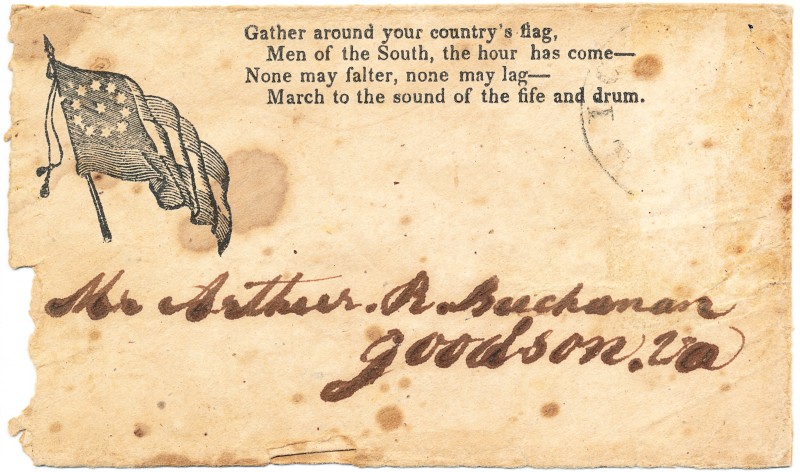 Gather around your country's flag,
Men of the South, the hour has come—
None may falter, none may lag—
March to the sound of the fife and drum.
Mr Arthur. R. Buchanan
Goodson. Va